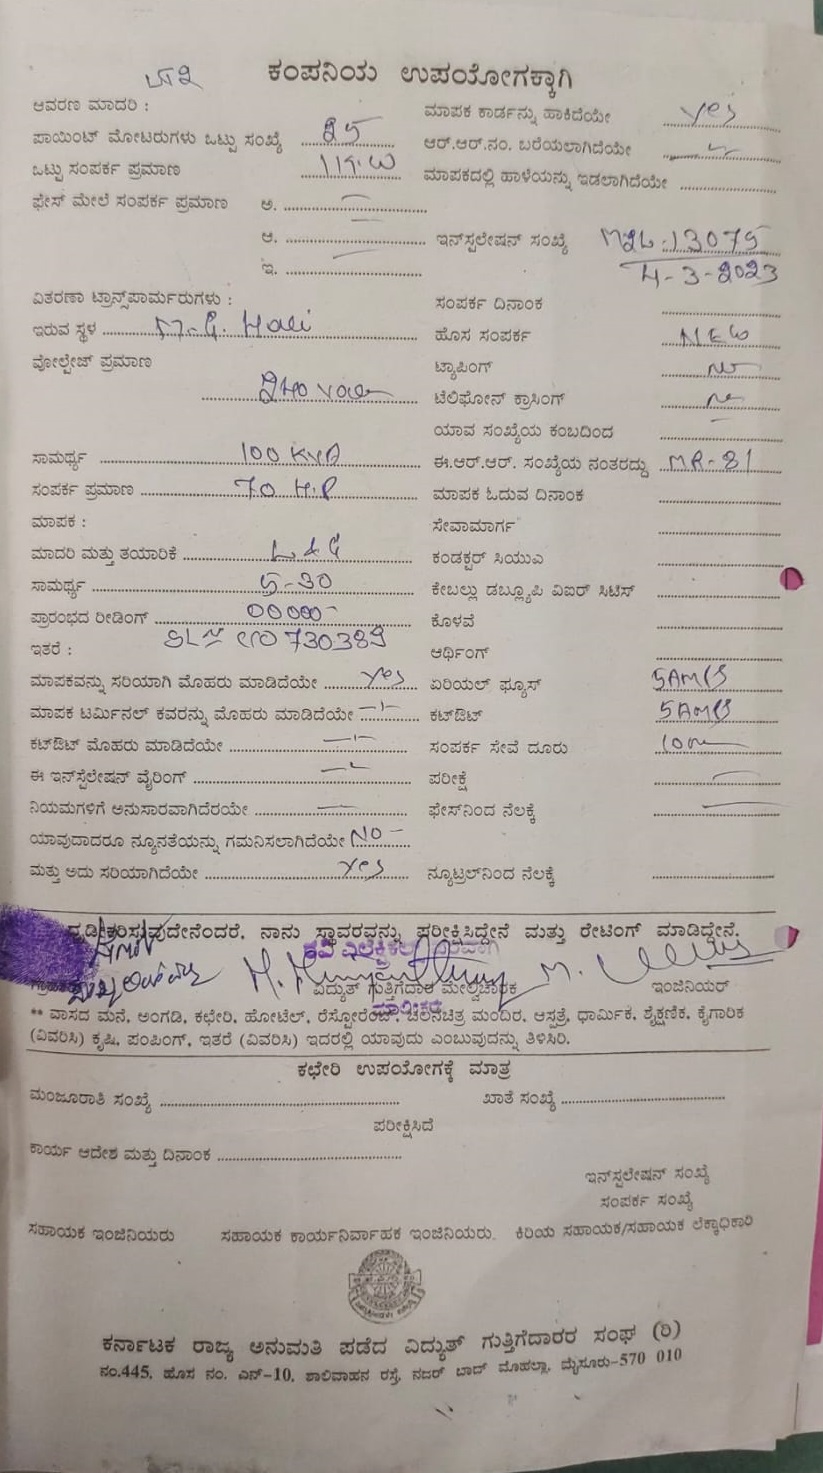 ಕಂಪನಿಯ ಉಪಯೋಗಕ್ಕಾಗಿ
ಆವರಣ ಮಾದರಿ : ಮಾಪಕ ಕಾರ್ಡನ್ನು ಹಾಕಿದೆಯೇ yes
ಪಾಯಿಂಟ್ ಮೋಟರುಗಳು ಒಟ್ಟು ಸಂಖ್ಯೆ 25 ಆರ್.ಆರ್.ನಂ. ಬರೆಯಲಾಗಿದೆಯೇ
ಒಟ್ಟು ಸಂಪರ್ಕ ಪ್ರಮಾಣ ಮಾಪಕದಲ್ಲಿ ಹಾಳೆಯನ್ನು ಇಡಲಾಗಿದೆಯೇ
ಫೇಸ್ ಮೇಲೆ ಸಂಪರ್ಕ ಪ್ರಮಾಣ ಅ.
ಆ. ಇನ್‌ಸ್ಟಲೇಷನ್ ಸಂಖ್ಯೆ 13075
ಇ. 4-3-2023
ವಿತರಣಾ ಟ್ರಾನ್ಸ್‌ಪಾರ್ಮರುಗಳು : ಸಂಪರ್ಕ ದಿನಾಂಕ
ಇರುವ ಸ್ಥಳ M.G. Hali ಹೊಸ ಸಂಪರ್ಕ NEW
ವೋಲ್ಟೇಜ್ ಪ್ರಮಾಣ ಟ್ಯಾಪಿಂಗ್ no
240 volt ಟೆಲಿಫೋನ್ ಕ್ರಾಸಿಂಗ್ no
ಯಾವ ಸಂಖ್ಯೆಯ ಕಂಬದಿಂದ
ಸಾಮರ್ಥ್ಯ 100 KVA ಈ.ಆರ್.ಆರ್. ಸಂಖ್ಯೆಯ ನಂತರದ್ದು MR-81
ಸಂಪರ್ಕ ಪ್ರಮಾಣ 70 H.P ಮಾಪಕ ಓದುವ ದಿನಾಂಕ
ಮಾಪಕ : ಸೇವಾಮಾರ್ಗ
ಮಾದರಿ ಮತ್ತು ತಯಾರಿಕೆ L&G ಕಂಡಕ್ಟರ್ ಸಿಯುಎ
ಸಾಮರ್ಥ್ಯ 5-30 ಕೇಬಲ್ಲು ಡಬ್ಲ್ಯೂಪಿ ವಿಐರ್ ಸಿಟಿಸ್
ಪ್ರಾರಂಭದ ರೀಡಿಂಗ್ 00000 ಕೊಳವೆ
ಇತರೆ : 730389 ಆರ್ಥಿಂಗ್
ಮಾಪಕವನ್ನು ಸರಿಯಾಗಿ ಮೊಹರು ಮಾಡಿದೆಯೇ yes ಏರಿಯಲ್ ಫ್ಯೂಸ್ 5AMPS
ಮಾಪಕ ಟರ್ಮಿನಲ್ ಕವರನ್ನು ಮೊಹರು ಮಾಡಿದೆಯೇ ಕಟ್‌ಔಟ್ 5AMPS
ಕಟ್‌ಔಟ್ ಮೊಹರು ಮಾಡಿದೆಯೇ ಸಂಪರ್ಕ ಸೇವೆ ದೂರು 10m
ಈ ಇನ್‌ಸ್ಟೆಲೇಷನ್ ವೈರಿಂಗ್ ಪರೀಕ್ಷೆ
ನಿಯಮಗಳಿಗೆ ಅನುಸಾರವಾಗಿದೆರಯೇ ಫೇಸ್‌ನಿಂದ ನೆಲಕ್ಕೆ
ಯಾವುದಾದರೂ ನ್ಯೂನತೆಯನ್ನು ಗಮನಿಸಲಾಗಿದೆಯೇ NO
ಮತ್ತು ಅದು ಸರಿಯಾಗಿದೆಯೇ yes ನ್ಯೂಟ್ರಲ್‌ನಿಂದ ನೆಲಕ್ಕೆ
ದೃಡೀಕರಿಸುವುದೇನೆಂದರೆ, ನಾನು ಸ್ಥಾವರವನ್ನು ಪರೀಕ್ಷಿಸಿದ್ದೇನೆ ಮತ್ತು ರೇಟಿಂಗ್ ಮಾಡಿದ್ದೇನೆ.
ವಿದ್ಯುತ್ ಗುತ್ತಿಗೆದಾರ ಮೇಲ್ವಿಚಾರಕ ಇಂಜಿನಿಯರ್
** ವಾಸದ ಮನೆ, ಅಂಗಡಿ, ಕಛೇರಿ, ಹೋಟೆಲ್, ರೆಸ್ಟೋರೆಂಟ್, ಚಲನಚಿತ್ರ ಮಂದಿರ, ಆಸ್ಪತ್ರೆ, ಧಾರ್ಮಿಕ, ಶೈಕ್ಷಣಿಕ, ಕೈಗಾರಿಕ
(ವಿವರಿಸಿ) ಕೃಷಿ, ಪಂಪಿಂಗ್, ಇತರೆ (ವಿವರಿಸಿ) ಇದರಲ್ಲಿ ಯಾವುದು ಎಂಬುವುದನ್ನು ತಿಳಿಸಿರಿ.
ಕಛೇರಿ ಉಪಯೋಗಕ್ಕೆ ಮಾತ್ರ
ಮಂಜೂರಾತಿ ಸಂಖ್ಯೆ ಖಾತೆ ಸಂಖ್ಯೆ
ಪರೀಕ್ಷಿಸಿದೆ
ಕಾರ್ಯ ಆದೇಶ ಮತ್ತು ದಿನಾಂಕ
ಇನ್‌ಸ್ಟಲೇಷನ್ ಸಂಖ್ಯೆ
ಸಂಪರ್ಕ ಸಂಖ್ಯೆ
ಸಹಾಯಕ ಇಂಜಿನಿಯರು ಸಹಾಯಕ ಕಾರ್ಯನಿರ್ವಾಹಕ ಇಂಜಿನಿಯರು. ಕಿರಿಯ ಸಹಾಯಕ/ಸಹಾಯಕ ಲೆಕ್ಕಾಧಿಕಾರಿ
ಕರ್ನಾಟಕ ರಾಜ್ಯ ಅನುಮತಿ ಪಡೆದ ವಿದ್ಯುತ್ ಗುತ್ತಿಗೆದಾರರ ಸಂಘ (ರಿ)
ನಂ.445, ಹೊಸ ನಂ. ಎನ್-10, ಶಾಲಿವಾಹನ ರಸ್ತೆ, ನಜರ್ ಬಾದ್ ಮೊಹಲ್ಲಾ, ಮೈಸೂರು-570 010